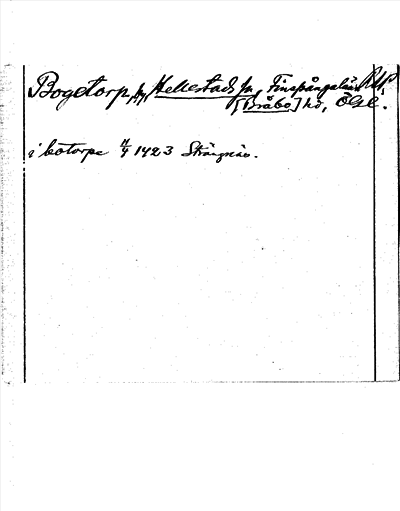 Bogetorp, by, Hellestads sn, Finspångaläns
[Bråbo] hd, Ögl.
i botorpe 4/9 1423 Strängnäs.